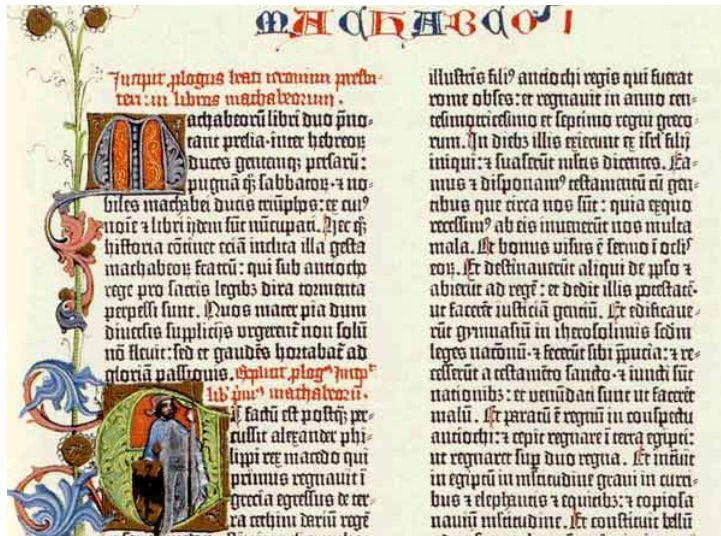 MACHABEOR I
Incipit plogus beati ieronimi presbi-
teri in libros machabeorum.
Machabeorū libri duo p̄no-
tant prelia inter hebreorꝫ
duces gentemqꝫ persarū:
pugnā qꝫ sabbatorꝝ· ⁊ no-
biles machabei ducis triūphos: ex cuiꝰ
noīe ⁊ libri ijdem sūt nūcupati. Hec qꝫ
historia cōtinet eciā inclita illa gesta
machabeorꝝ fratrū: qui sub antiocho
rege pro sacris legibꝫ dira tormenta
perpessi sunt. Quos mater pia dum
diversis supplicijs urgerent̄ non solū
nō flevit: sed et gaudēs hortabat̄ ad
gloriā passionis. Explicit plogꝰ Incip̄t
lib̓ p̄mꝰ machabeorū.
Et factū est postqꝫ per-
cussit alexander phi-
lippi rex macedo qui
primus regnavit ī
grecia egressus de ter-
ra cethim dariū regē
illustris filiꝰ antiochi regis qui fuerat
rome obses: et regnavit in anno cen-
tesimotricesimo et septimo regni greco-
rum. In diebꝫ illis exierunt ex isrl̄ filij
iniqui: ⁊ suaserūt multis dicentes. Ea-
mus ⁊ disponamꝰ testamentū cū gen-
tibus que circa nos sūt: quia exquo
recessimꝰ ab eis invenerūt nos multa
mala. Et bonus visus ē sermo ī oclīs
eorꝝ. Et destinaverūt aliqui de pplo ⁊
abierūt ad regē: et dedit illis potestatē·
ut facerēt iusticiā gentiū. Et edificave-
rūt gymnasiū in iherosolimis scdm
leges nacōnū· ⁊ fecerūt sibi p̄pucia: ⁊ re-
cesserūt a testamēto sancto· ⁊ iuncti sūt
nationibꝫ: et venūdati sunt ut facerēt
malū. Et paratū ē regnū in conspectu
antiochi: ⁊ cepit regnare ī terra egypti:
ut regnaret sup duo regna. Et intravit
in egiptū in multitudine gravi in curri-
bus ⁊ elephantis ⁊ equitibꝫ: ⁊ copiosa
naviū multitudine. Et constituit bellū